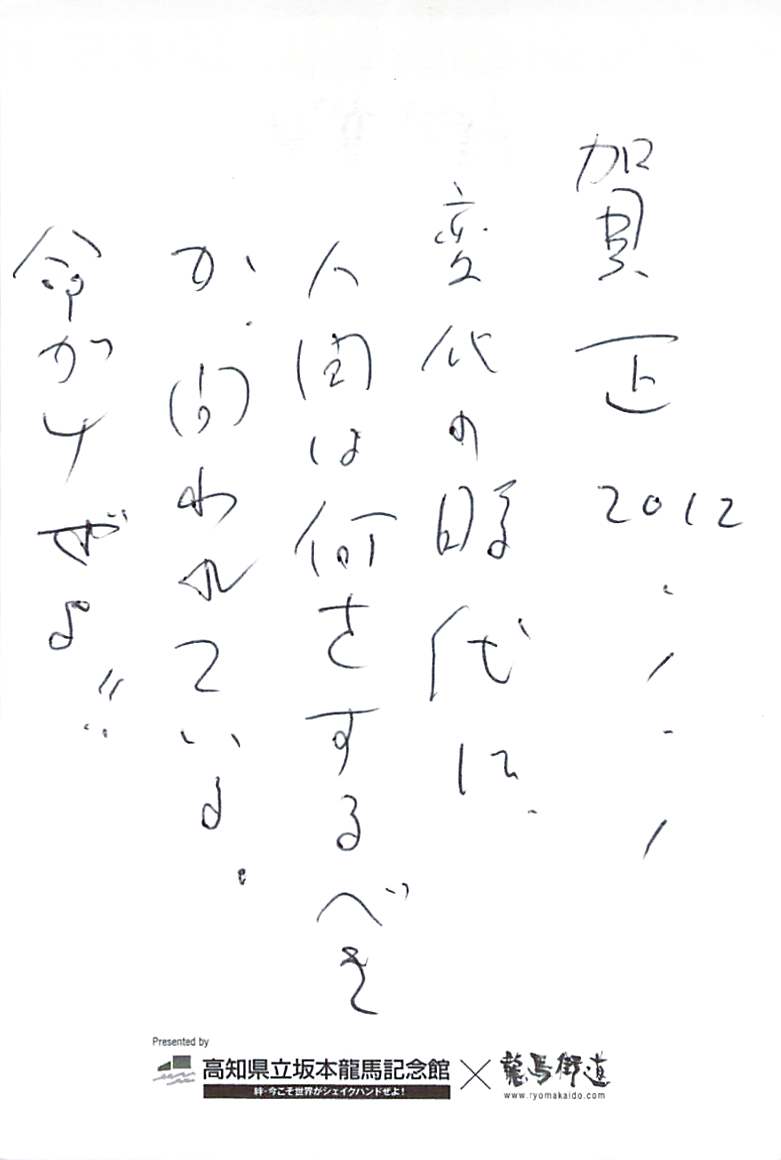 賀正 2012.1.1
変化の時代に.
人間は何をするべき
か、問われているよ.
命がけぜよ!!
Presented by
高知県立坂本龍馬記念館×龍馬街道
絆・今こそ世界がシェイクハンドぜよ!
www.ryomakaido.com